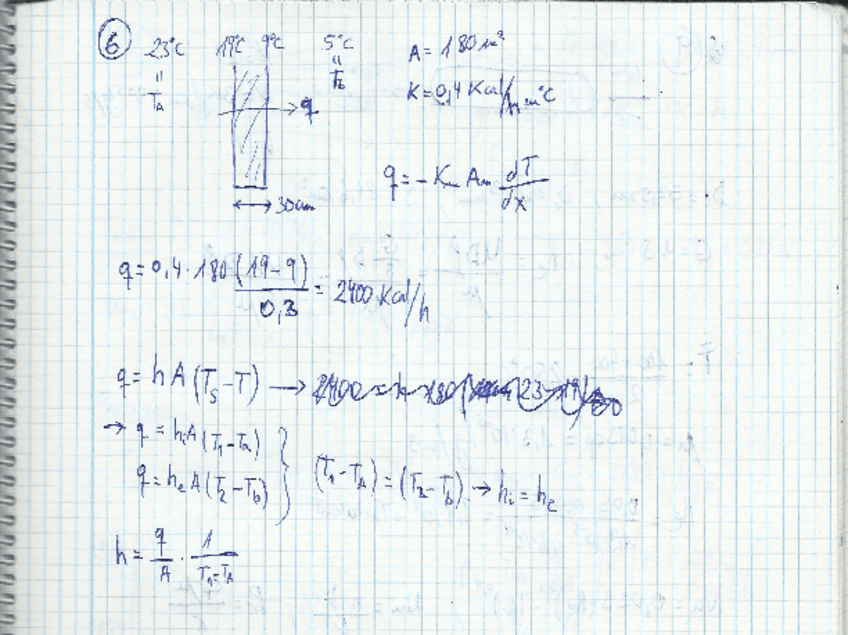 6 23°C 19°C 9°C 5°C A = 180 m²
" "
T_A T_b K = 0,4 Kcal/h m °C
→ q
q = -K_m A_m dT/dx
↔ 30 cm
q = 0,4 · 180 (19-9)/0,3 = 2400 Kcal/h
q = h A (T_S - T) →
→ q = h_i A (T_1 - T_a)
q = h_e A (T_2 - T_b) } (T_1 - T_A) = (T_2 - T_b) → h_i = h_e
h = q/A · 1/(T_1 - T_A)